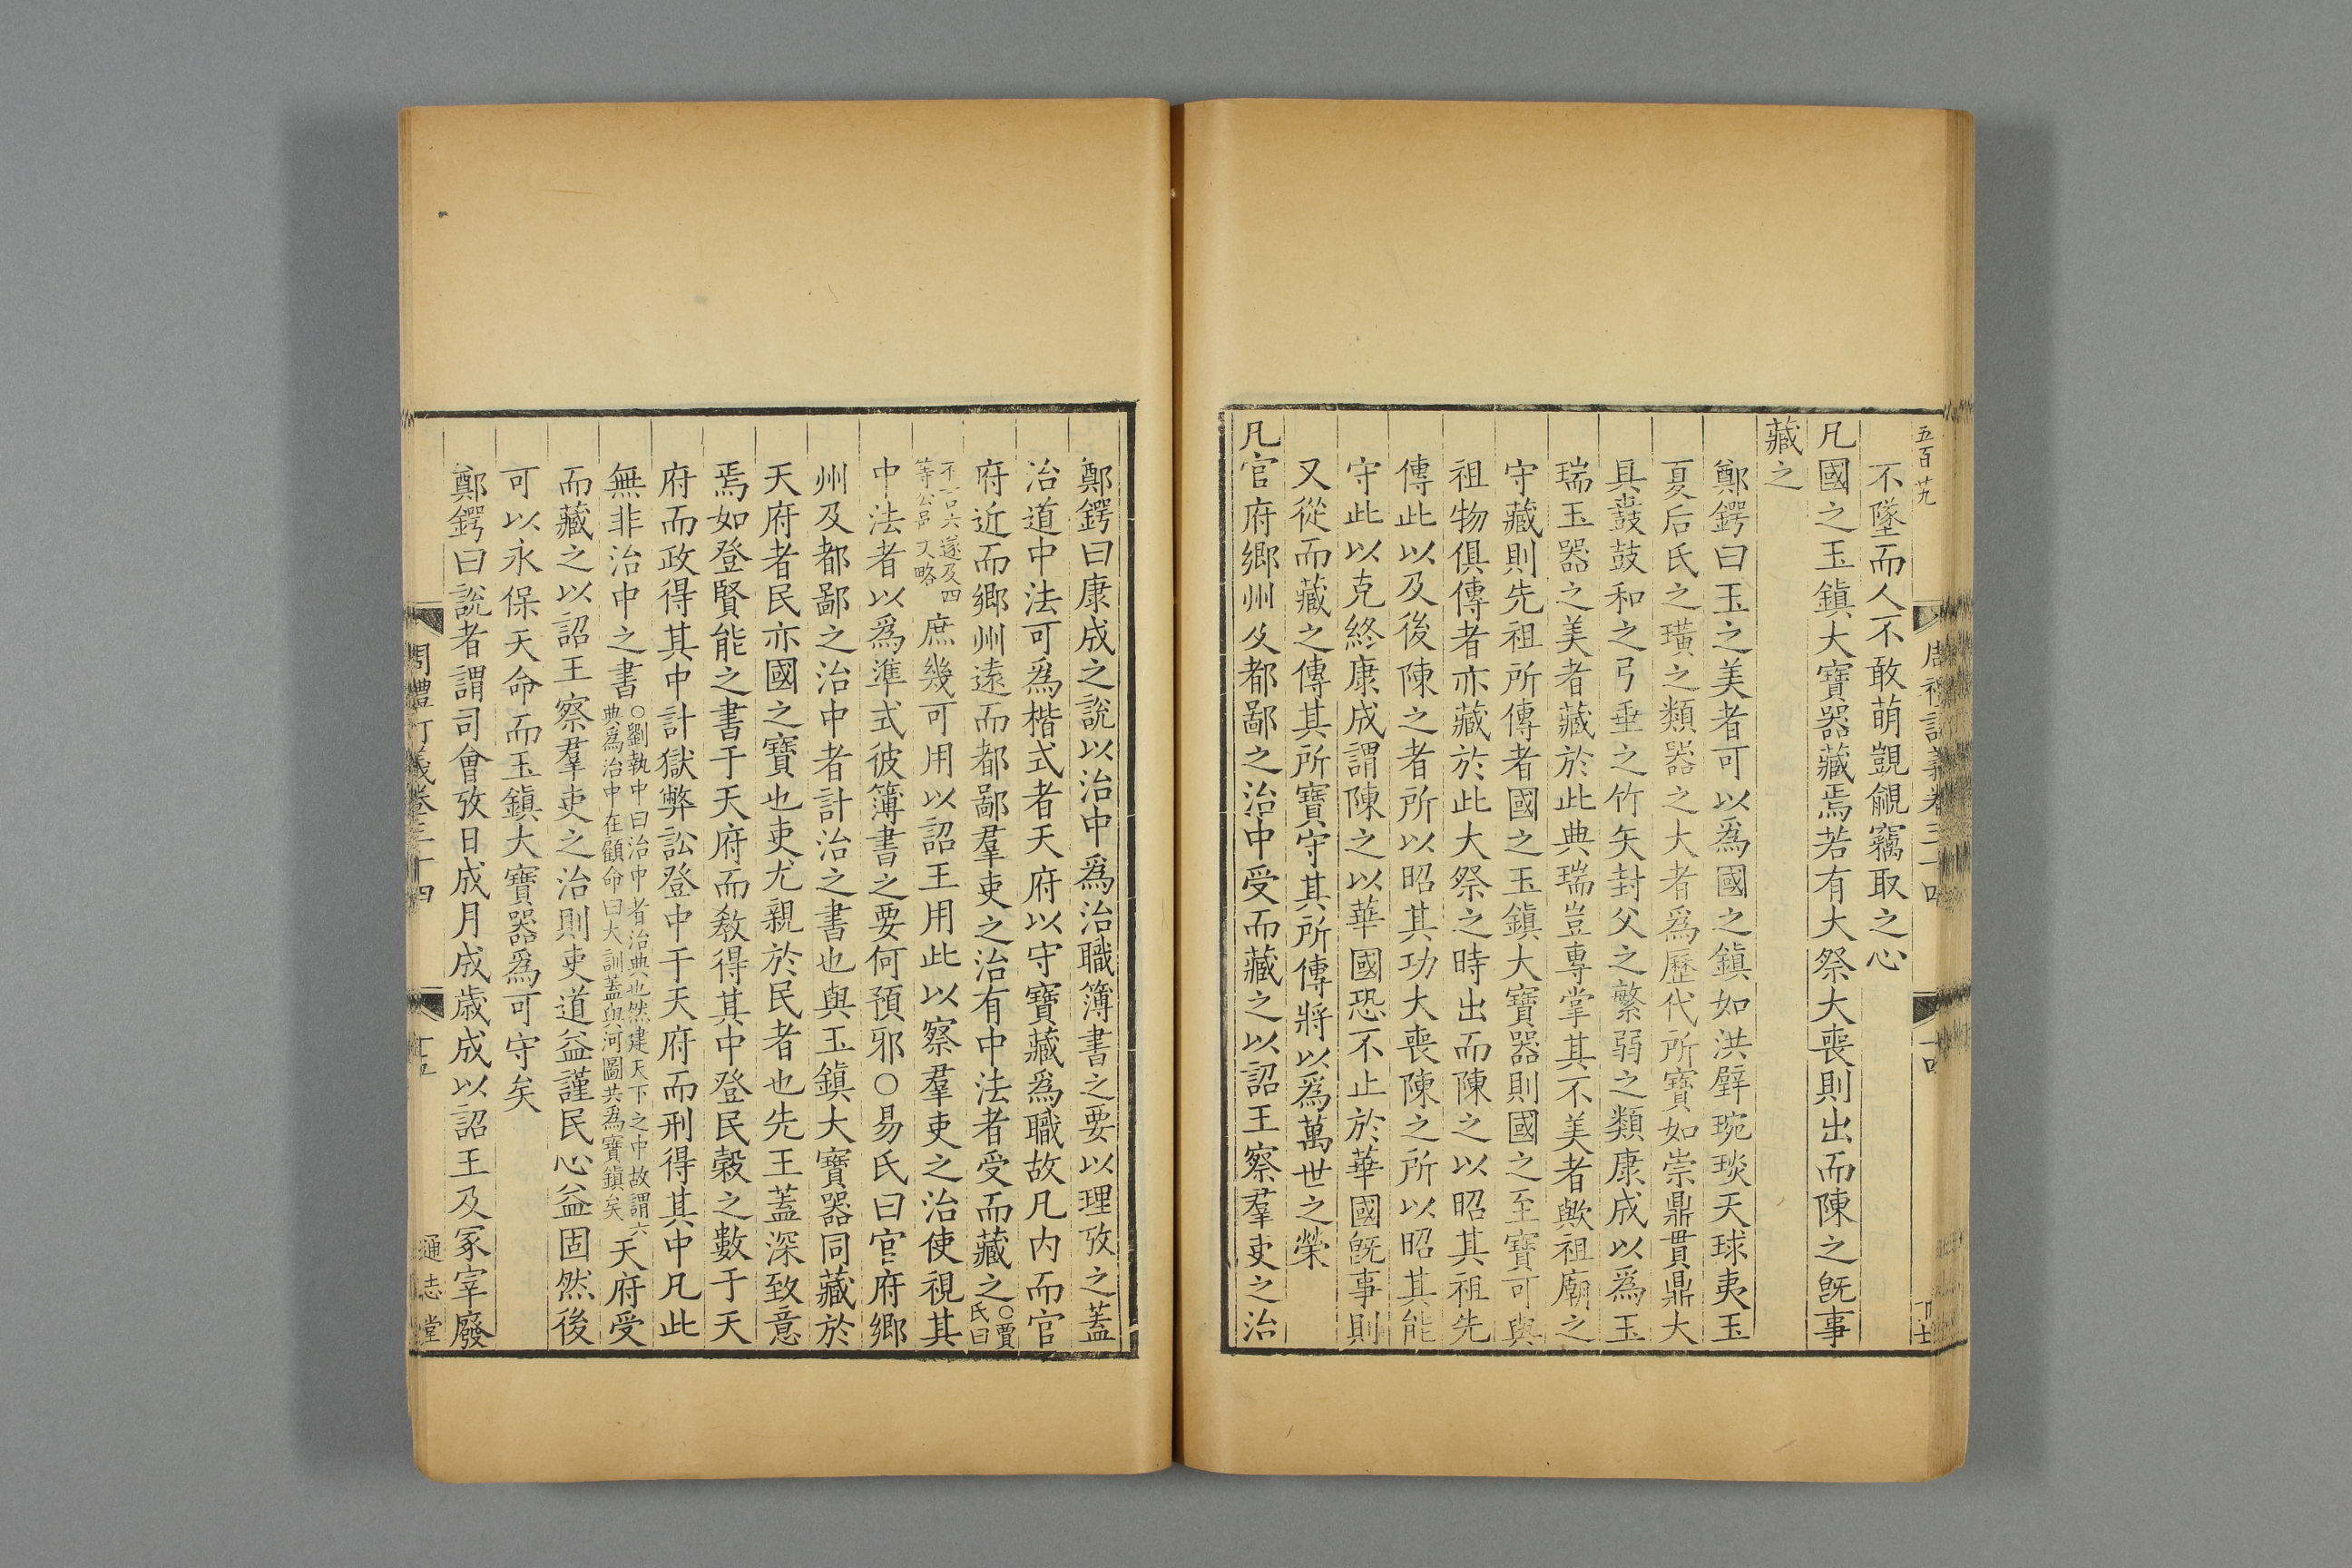 五百廿九
不墜而人不敢萌覬覦竊取之心
凡國之玉鎮大寶器藏焉若有大祭大喪則出而陳之旣事
藏之
鄭鍔曰玉之美者可以爲國之鎮如洪璧琬琰天球夷玉
夏后氏之璜之類器之大者爲歷代所寶如崇鼎貫鼎大
具鼖鼓和之弓垂之竹矢封父之繁弱之類康成以爲玉
瑞玉器之美者藏於此典瑞豈專掌其不美者歟祖廟之
守藏則先祖所傳者國之玉鎮大寶器則國之至寶可與
祖物俱傳者亦藏於此大祭之時出而陳之以昭其祖先
傳此以及後陳之者所以昭其功大喪陳之所以昭其能
守此以克終康成謂陳之以華國恐不止於華國旣事則
又從而藏之傳其所寶守其所傳將以爲萬世之榮
凡官府鄉州及都鄙之治中受而藏之以詔王察羣吏之治
鄭鍔曰康成之說以治中爲治職簿書之要以理攷之蓋
治道中法可爲楷式者天府以守寶藏爲職故凡內而官
府近而鄉州遠而都鄙羣吏之治有中法者受而藏之○賈氏曰
不言六遂及四等公邑文略庶幾可用以詔王用此以察羣吏之治使視其
中法者以爲準式彼簿書之要何預邪○易氏曰官府鄉
州及都鄙之治中者計治之書也與玉鎮大寶器同藏於
天府者民亦國之寶也吏尤親於民者也先王蓋深致意
焉如登賢能之書于天府而敎得其中登民穀之數于天
府而政得其中計獄弊訟登中于天府而刑得其中凡此
無非治中之書○劉執中曰治中者治典也然建天下之中故謂六典爲治中在顧命曰大訓蓋與河圖共爲寶鎮矣天府受
而藏之以詔王察羣吏之治則吏道益謹民心益固然後
可以永保天命而玉鎮大寶器爲可守矣
鄭鍔曰說者謂司會攷日成月成歲成以詔王及冢宰廢
周禮訂義卷三十四
十五
通志堂